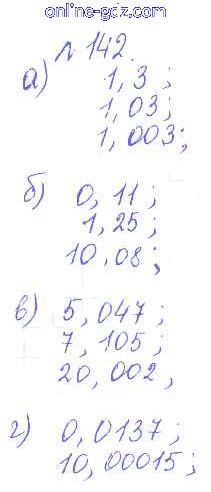 online-gdz.com
№ 142.
а) 1,3;
1,03;
1,003;
б) 0,11;
1,25;
10,08;
в) 5,047;
7,105;
20,002,
г) 0,0137;
10,00015;